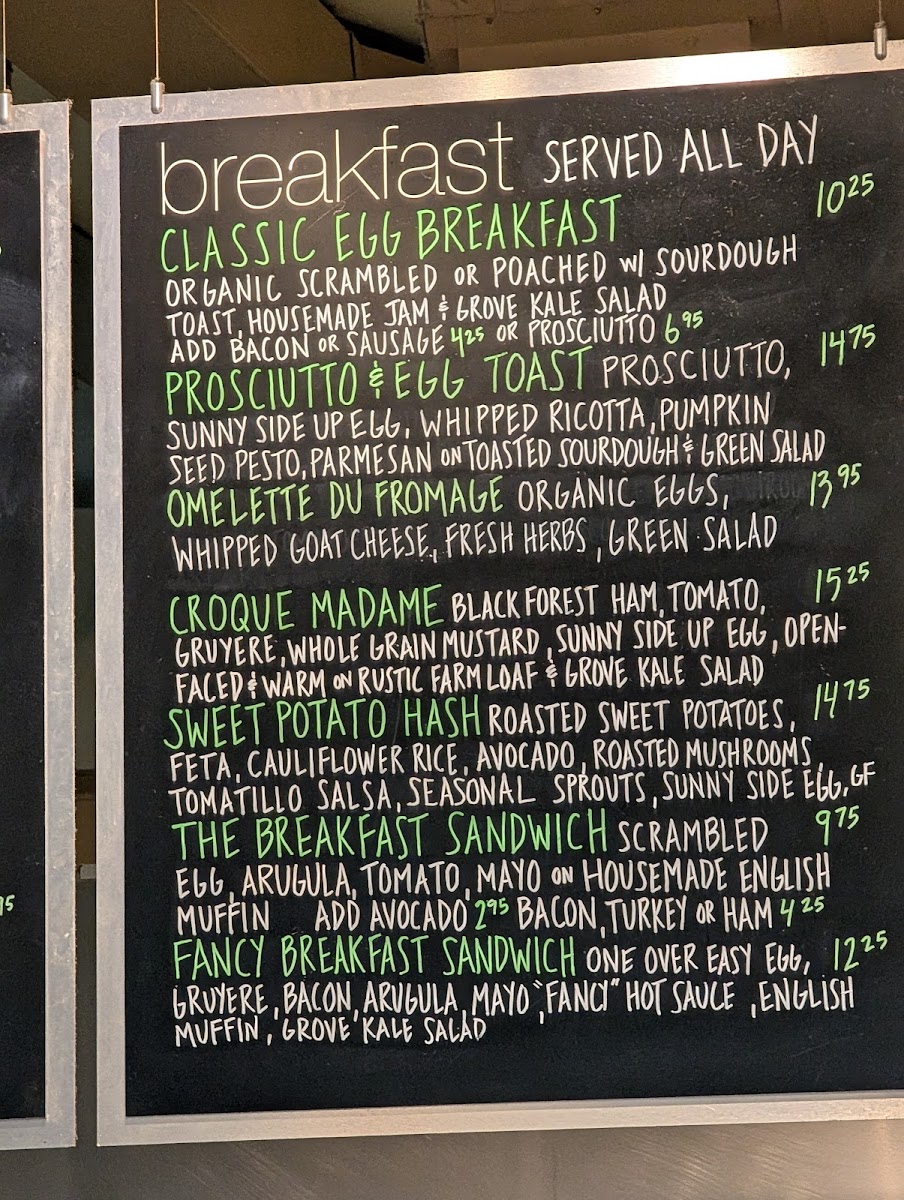 breakfast SERVED ALL DAY
CLASSIC EGG BREAKFAST 10 25
ORGANIC SCRAMBLED OR POACHED w/ SOURDOUGH
TOAST, HOUSEMADE JAM & GROVE KALE SALAD
ADD BACON OR SAUSAGE 4 25 OR PROSCIUTTO 6 95
PROSCIUTTO & EGG TOAST PROSCIUTTO, 14 75
SUNNY SIDE UP EGG, WHIPPED RICOTTA, PUMPKIN
SEED PESTO, PARMESAN ON TOASTED SOURDOUGH & GREEN SALAD
OMELETTE DU FROMAGE ORGANIC EGGS, 13 95
WHIPPED GOAT CHEESE, FRESH HERBS, GREEN SALAD
CROQUE MADAME BLACK FOREST HAM, TOMATO, 15 25
GRUYERE, WHOLE GRAIN MUSTARD, SUNNY SIDE UP EGG, OPEN-
FACED & WARM ON RUSTIC FARM LOAF & GROVE KALE SALAD
SWEET POTATO HASH ROASTED SWEET POTATOES, 14 75
FETA, CAULIFLOWER RICE, AVOCADO, ROASTED MUSHROOMS,
TOMATILLO SALSA, SEASONAL SPROUTS, SUNNY SIDE EGG, GF
THE BREAKFAST SANDWICH SCRAMBLED 9 75
EGG, ARUGULA, TOMATO, MAYO ON HOUSEMADE ENGLISH
MUFFIN ADD AVOCADO 2 95 BACON, TURKEY OR HAM 4 25
FANCY BREAKFAST SANDWICH ONE OVER EASY EGG, 12 25
GRUYERE, BACON, ARUGULA, MAYO, "FANCY" HOT SAUCE, ENGLISH
MUFFIN, GROVE KALE SALAD